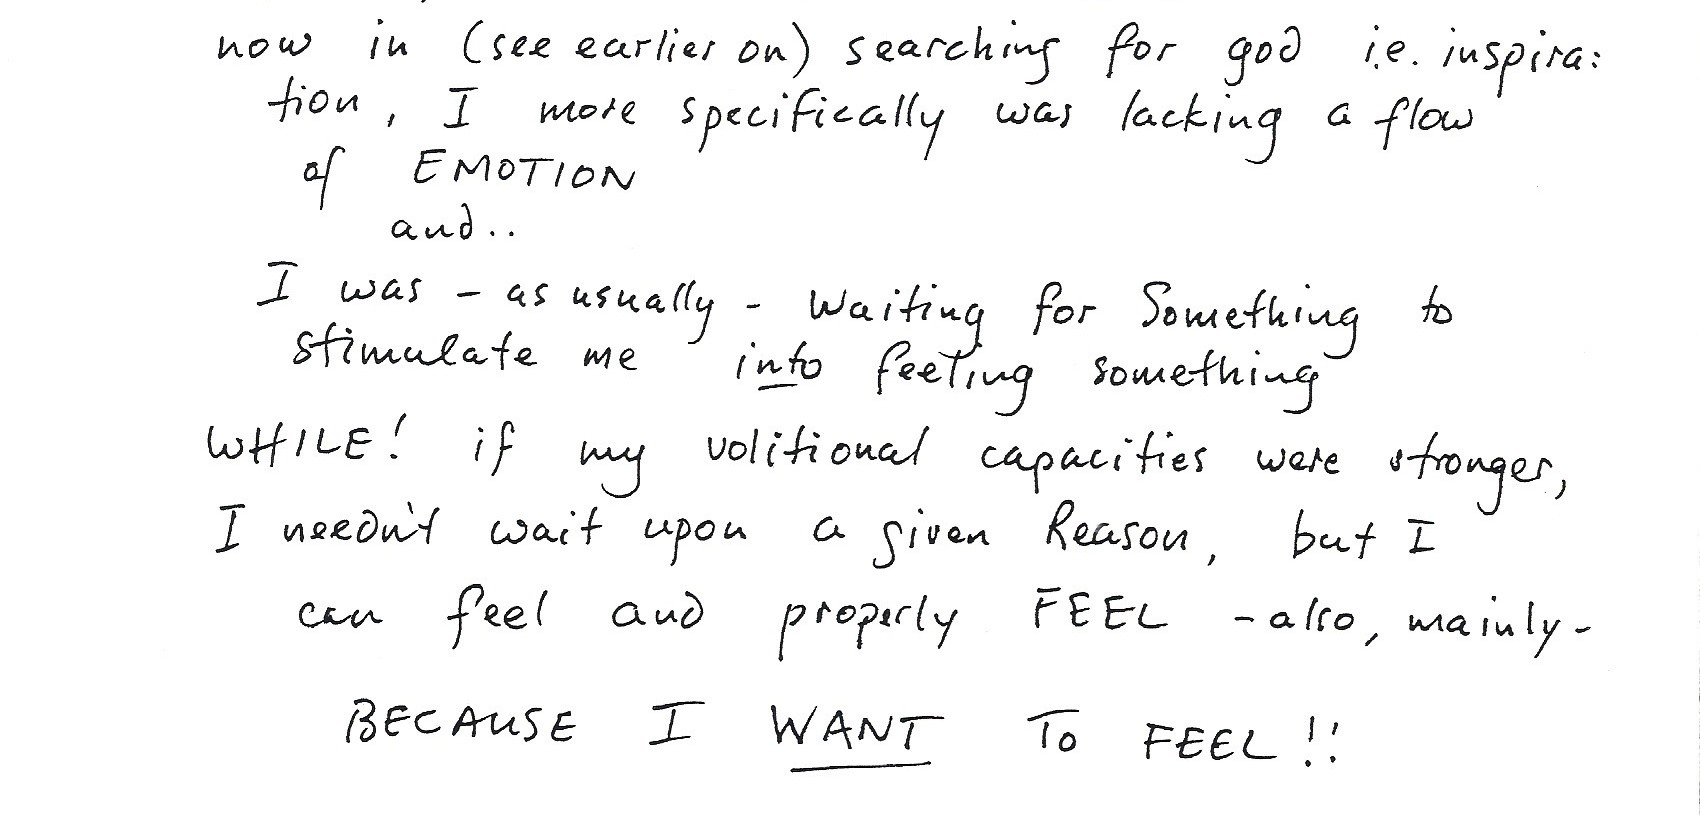 now in (see earlier on) searching for god i.e. inspira:
tion, I more specifically was lacking a flow
of EMOTION
and..
I was - as usually - waiting for Something to
stimulate me into feeling something
WHILE! if my volitional capacities were stronger,
I needn't wait upon a given Reason, but I
can feel and properly FEEL - also, mainly -
BECAUSE I WANT TO FEEL!!